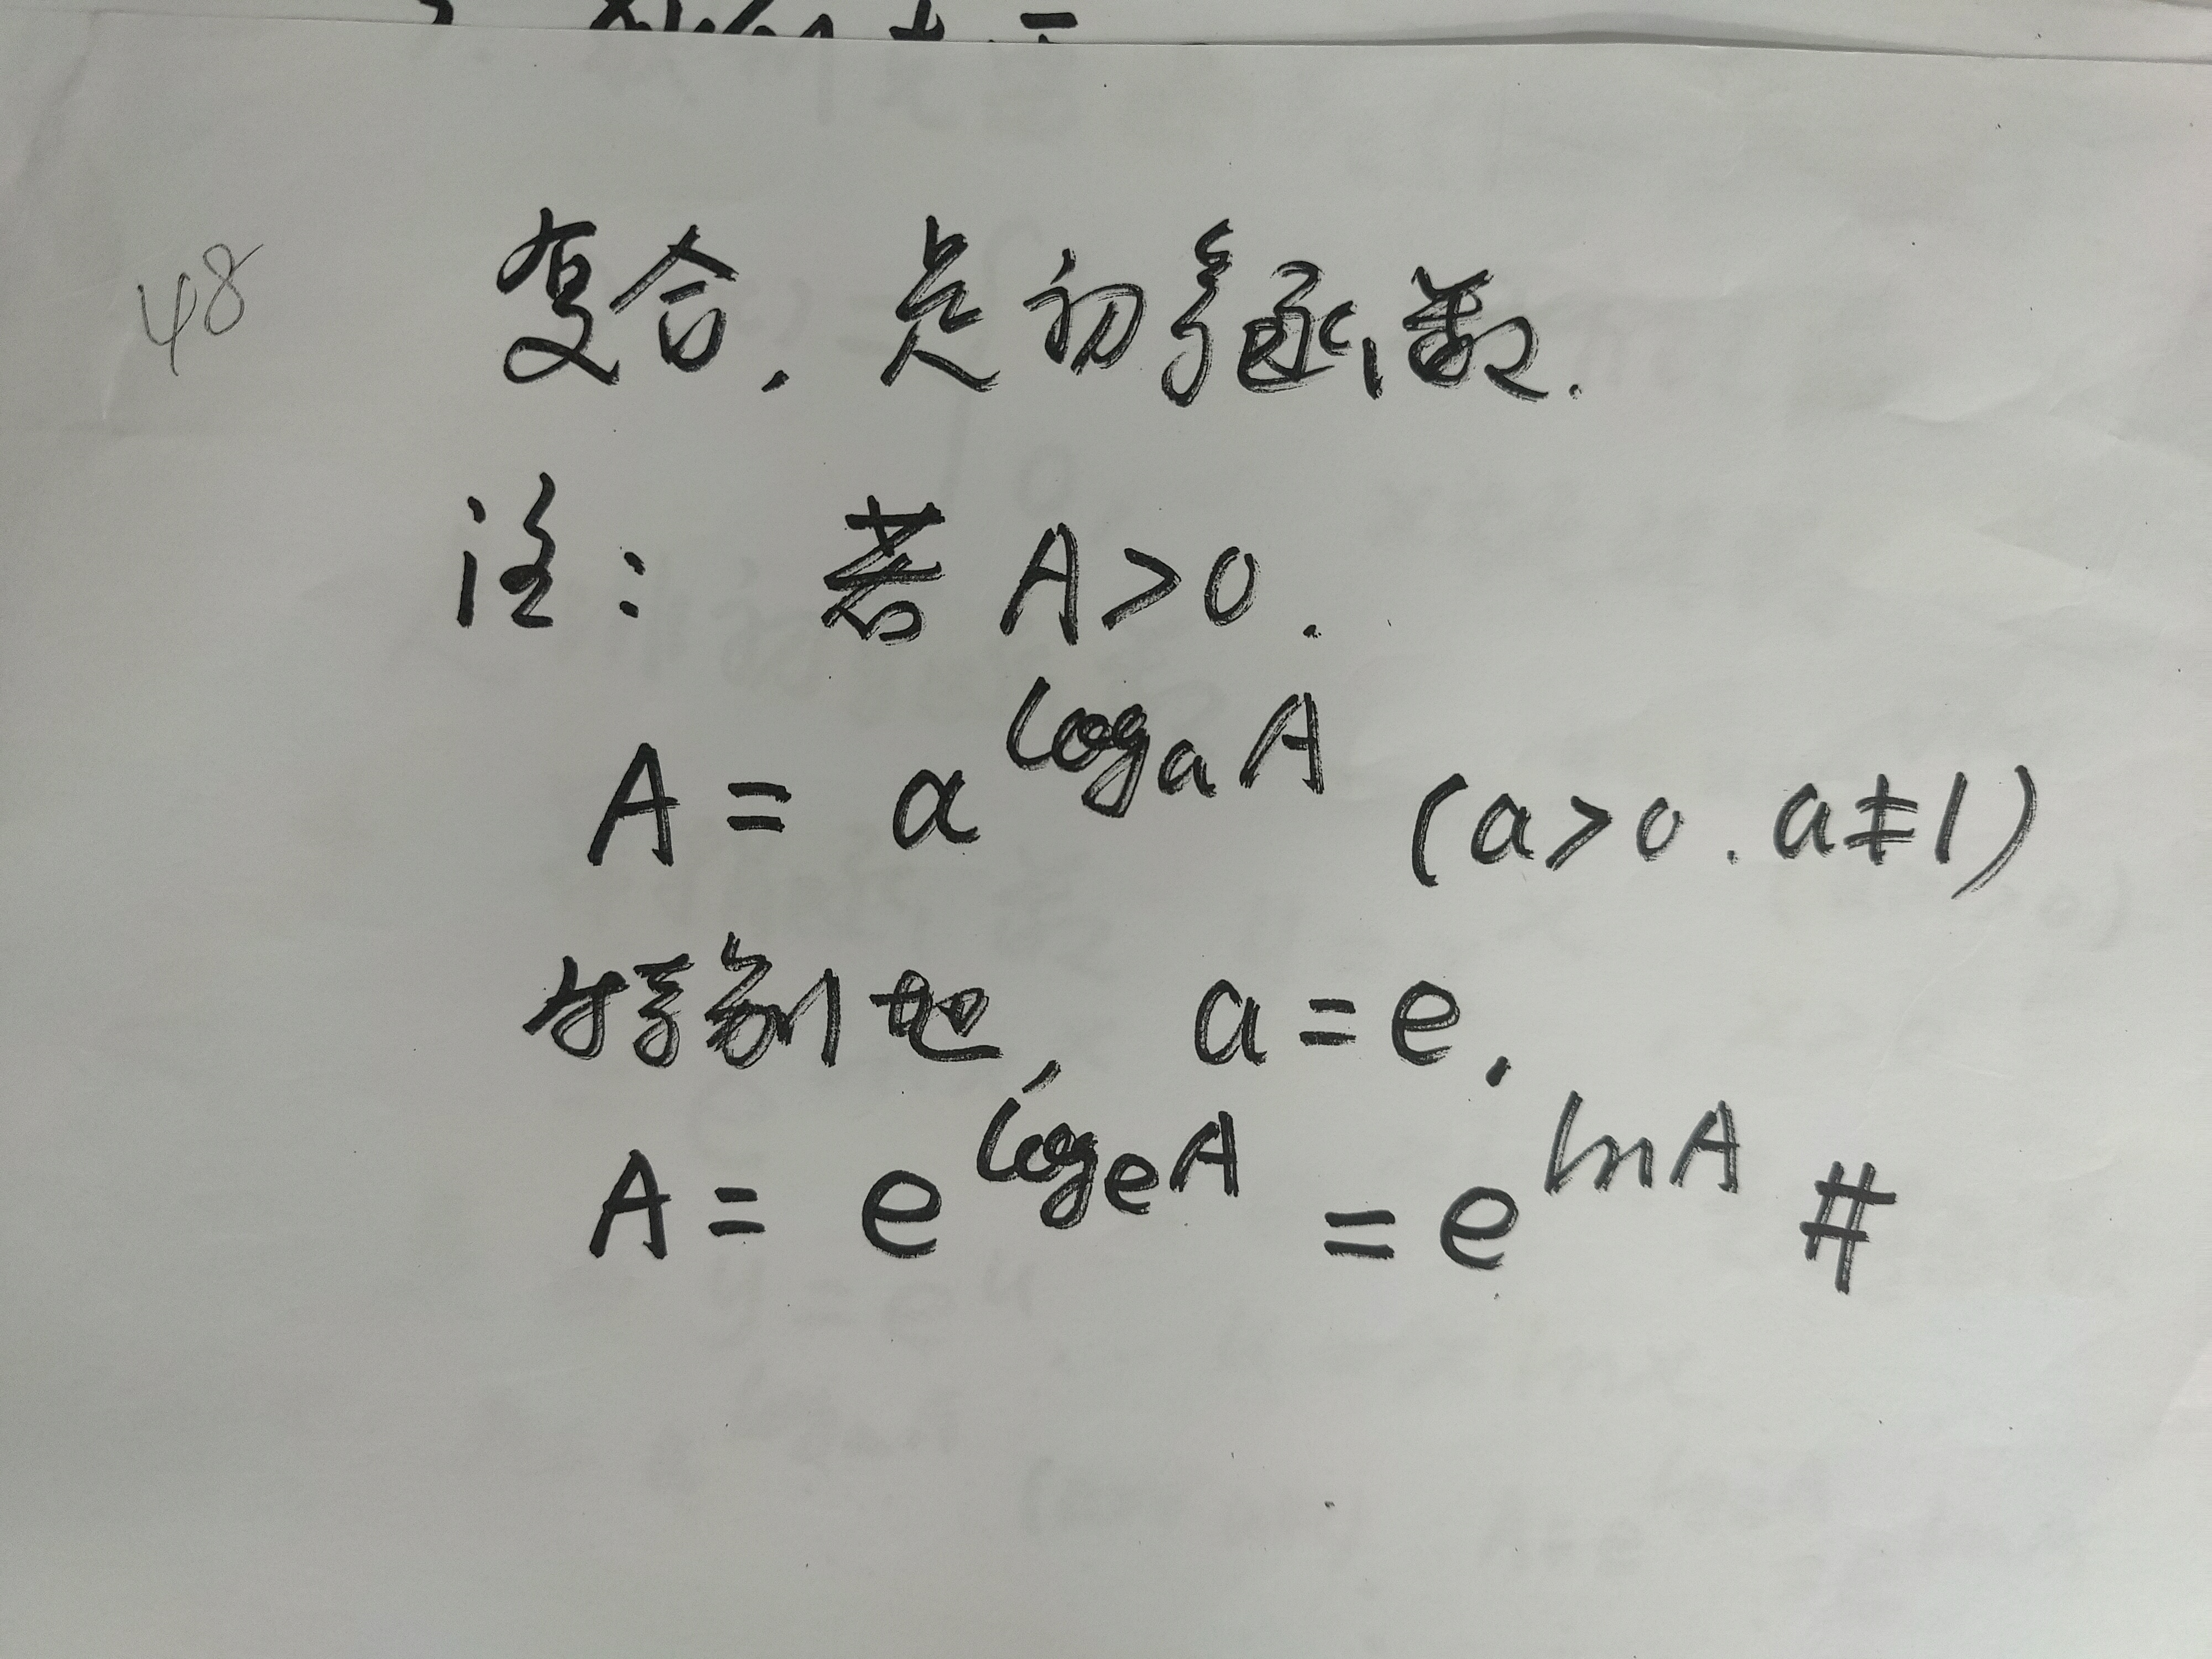 48 复合，是初等函数.
注： 若 A>0.
A = a^{log_a A} (a>0. a≠1)
特别地, a=e.
A = e^{log_e A} = e^{ln A} #